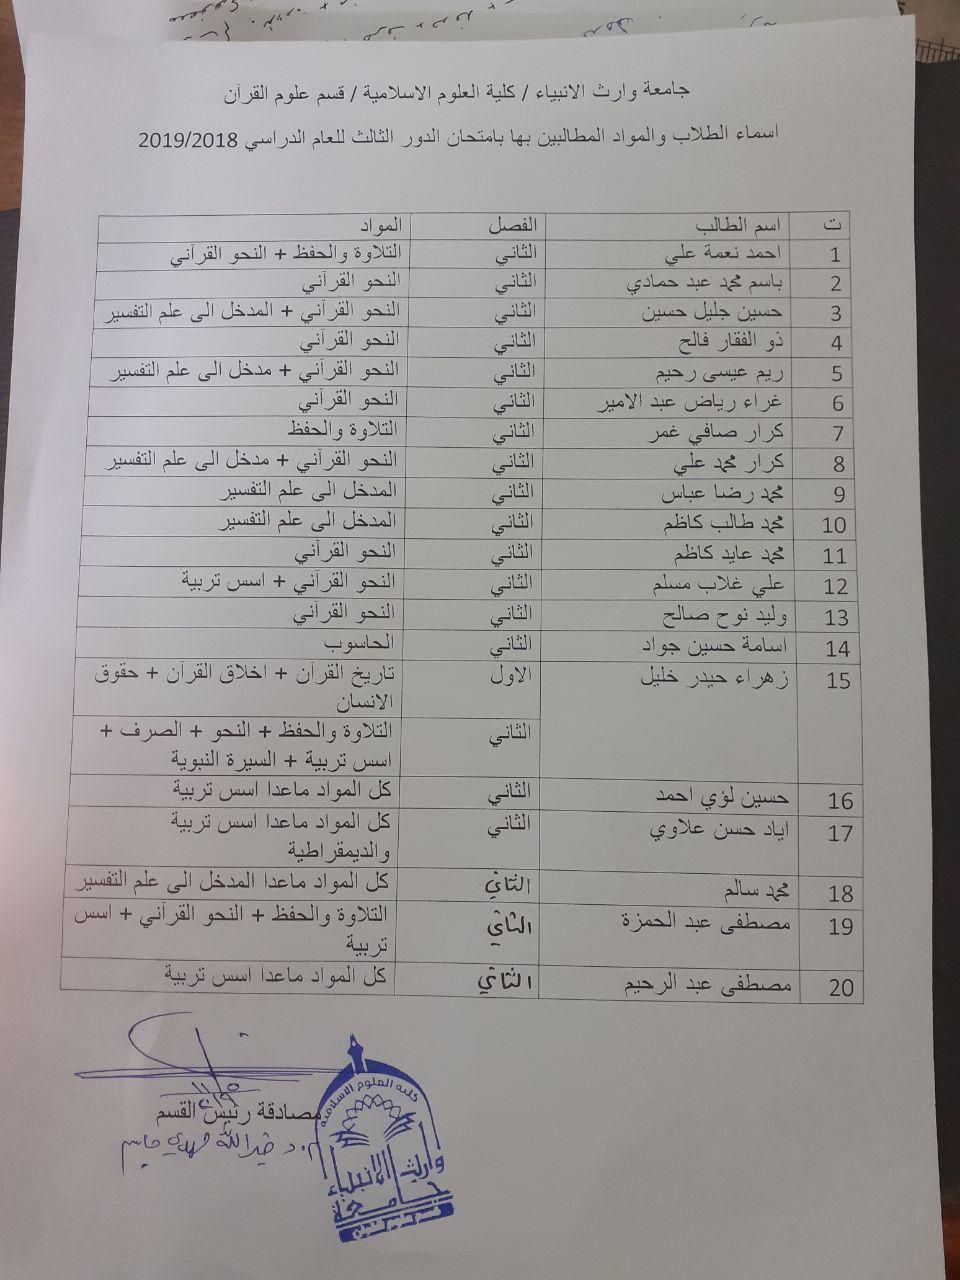 جامعة وارث الانبياء / كلية العلوم الاسلامية / قسم علوم القرآن
اسماء الطلاب والمواد المطالبين بها بامتحان الدور الثالث للعام الدراسي 2019/2018
ت اسم الطالب الفصل المواد
1 احمد نعمة علي الثاني التلاوة والحفظ + النحو القرآني
2 باسم محمد عبد حمادي الثاني النحو القرآني
3 حسين جليل حسين الثاني النحو القرآني + المدخل الى علم التفسير
4 ذو الفقار فالح الثاني النحو القرآني
5 ريم عيسى رحيم الثاني النحو القرآني + مدخل الى علم التفسير
6 غراء رياض عبد الامير الثاني النحو القرآني
7 كرار صافي غمر الثاني التلاوة والحفظ
8 كرار محمد علي الثاني النحو القرآني + مدخل الى علم التفسير
9 محمد رضا عباس الثاني المدخل الى علم التفسير
10 محمد طالب كاظم الثاني المدخل الى علم التفسير
11 محمد عايد كاظم الثاني النحو القرآني
12 علي غلاب مسلم الثاني النحو القرآني + اسس تربية
13 وليد نوح صالح الثاني النحو القرآني
14 اسامة حسين جواد الثاني الحاسوب
15 زهراء حيدر خليل الاول تاريخ القرآن + اخلاق القرآن + حقوق
الانسان
الثاني التلاوة والحفظ + النحو + الصرف +
اسس تربية + السيرة النبوية
16 حسين لؤي احمد الثاني كل المواد ماعدا اسس تربية
17 اياد حسن علاوي الثاني كل المواد ماعدا اسس تربية
والديمقراطية
18 محمد سالم الثاني كل المواد ماعدا المدخل الى علم التفسير
19 مصطفى عبد الحمزة الثاني التلاوة والحفظ + النحو القرآني + اسس
تربية
20 مصطفى عبد الرحيم الثاني كل المواد ماعدا اسس تربية
مصادقة رئيس القسم
كلية العلوم الاسلامية
وارث الانبياء
جامعة